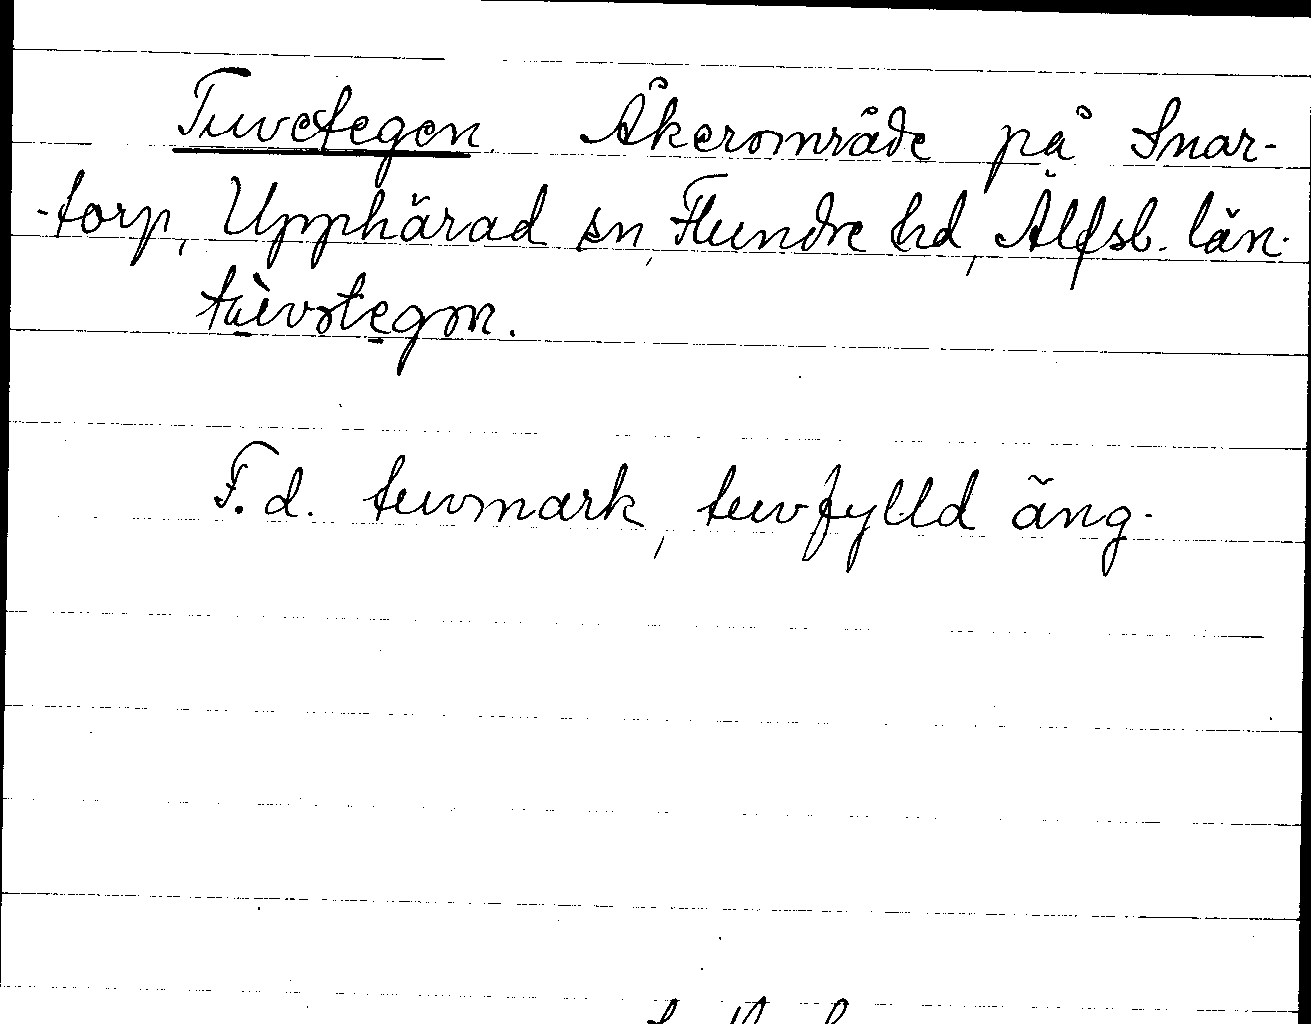 Tuvetegen. Åkerområde på Snar-
-torp, Upphärad sn, Flundre hd, Älfsb. län.
tùvotegon.
F.d. tuvmark, tuvfylld äng.